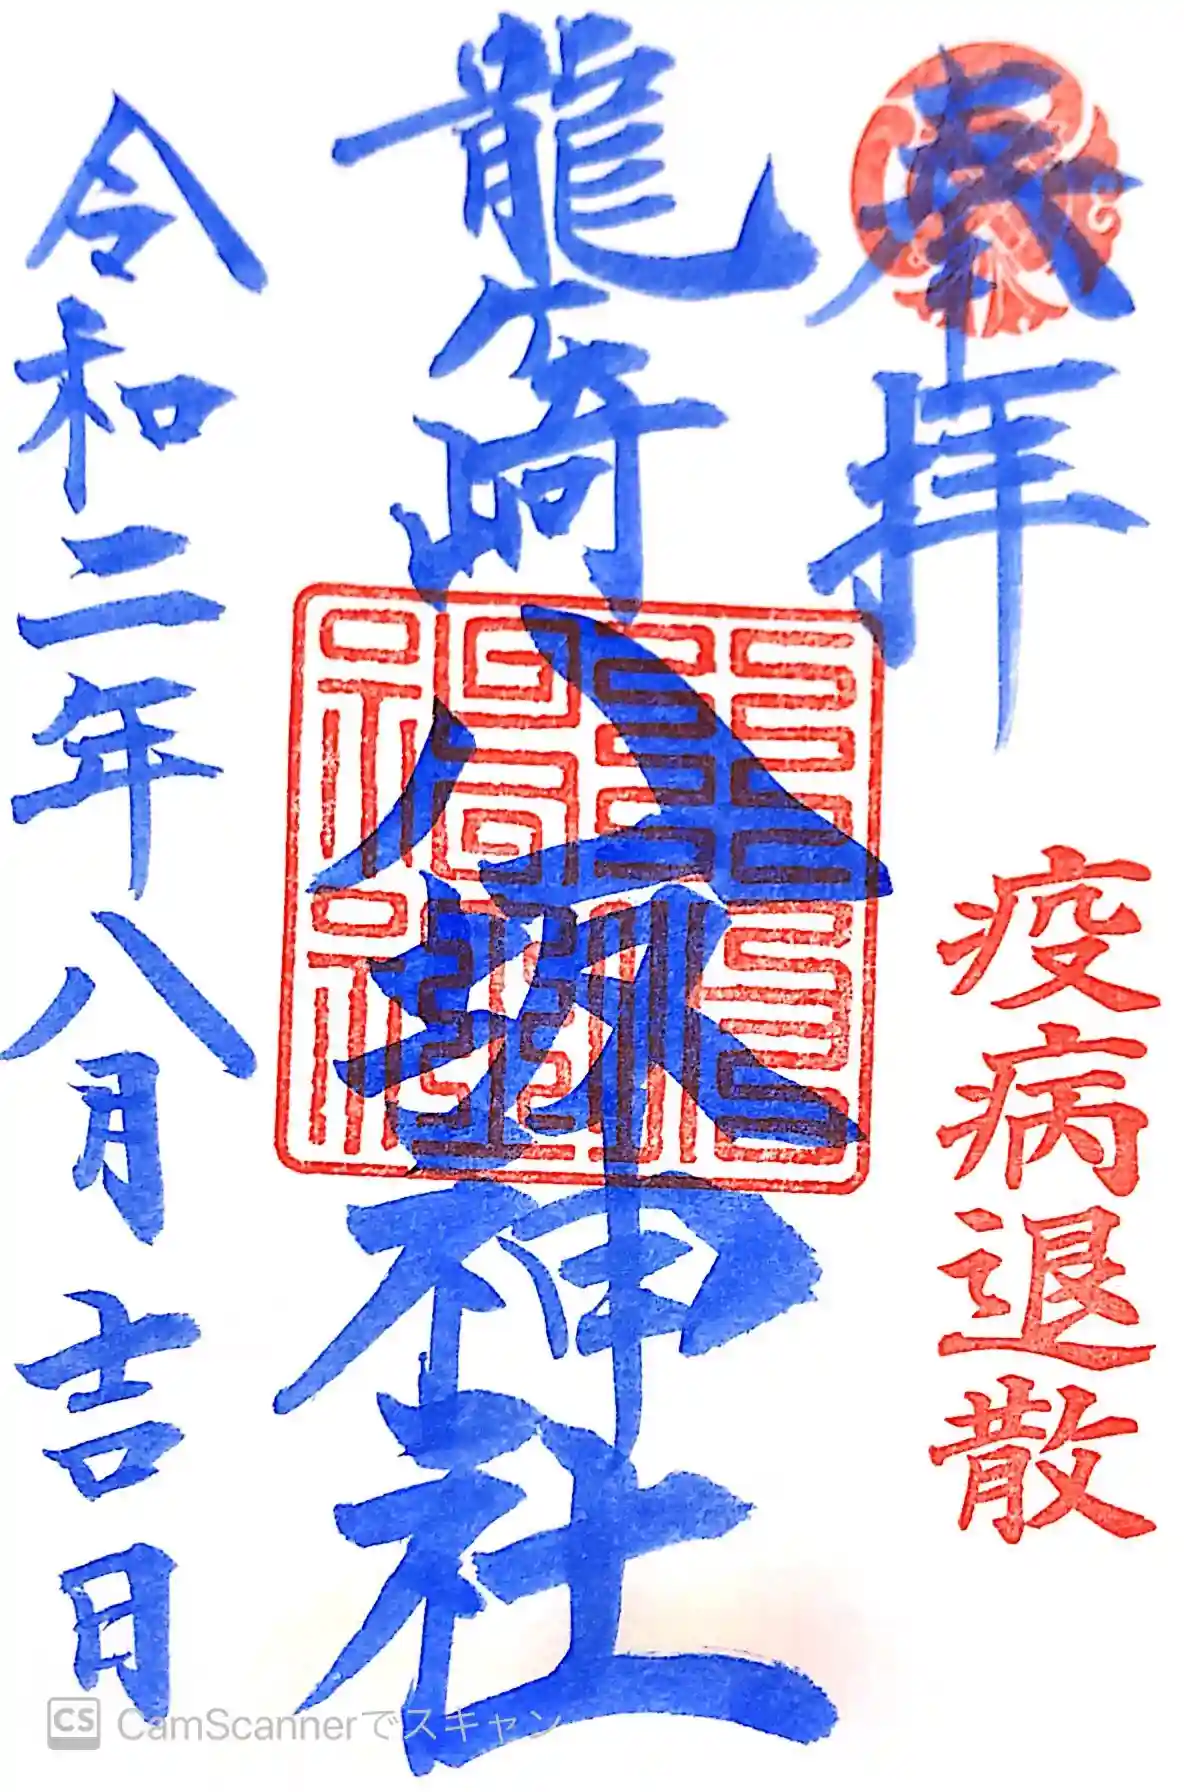 奉拝
疫病退散
龍ケ崎八坂神社
令和二年八月吉日
CS CamScannerでスキャン